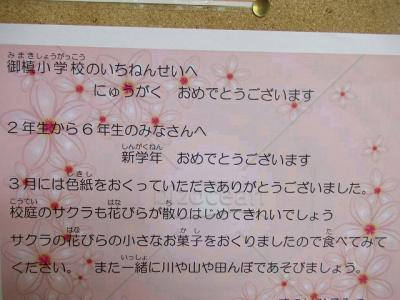 みまきしょうがっこう
御槙小学校のいちねんせいへ
にゅうがく　おめでとうございます
２年生から６年生のみなさんへ
しんがくねん
新学年　おめでとうございます
しきし
３月には色紙をおくっていただきありがとうございました。
こうてい　はな　ち
校庭のサクラも花びらが散りはじめてきれいでしょう
はな　かし　た
サクラの花びらの小さなお菓子をおくりましたので食べてみて
いっしょ
ください。　また一緒に川や山や田んぼであそびましょう。